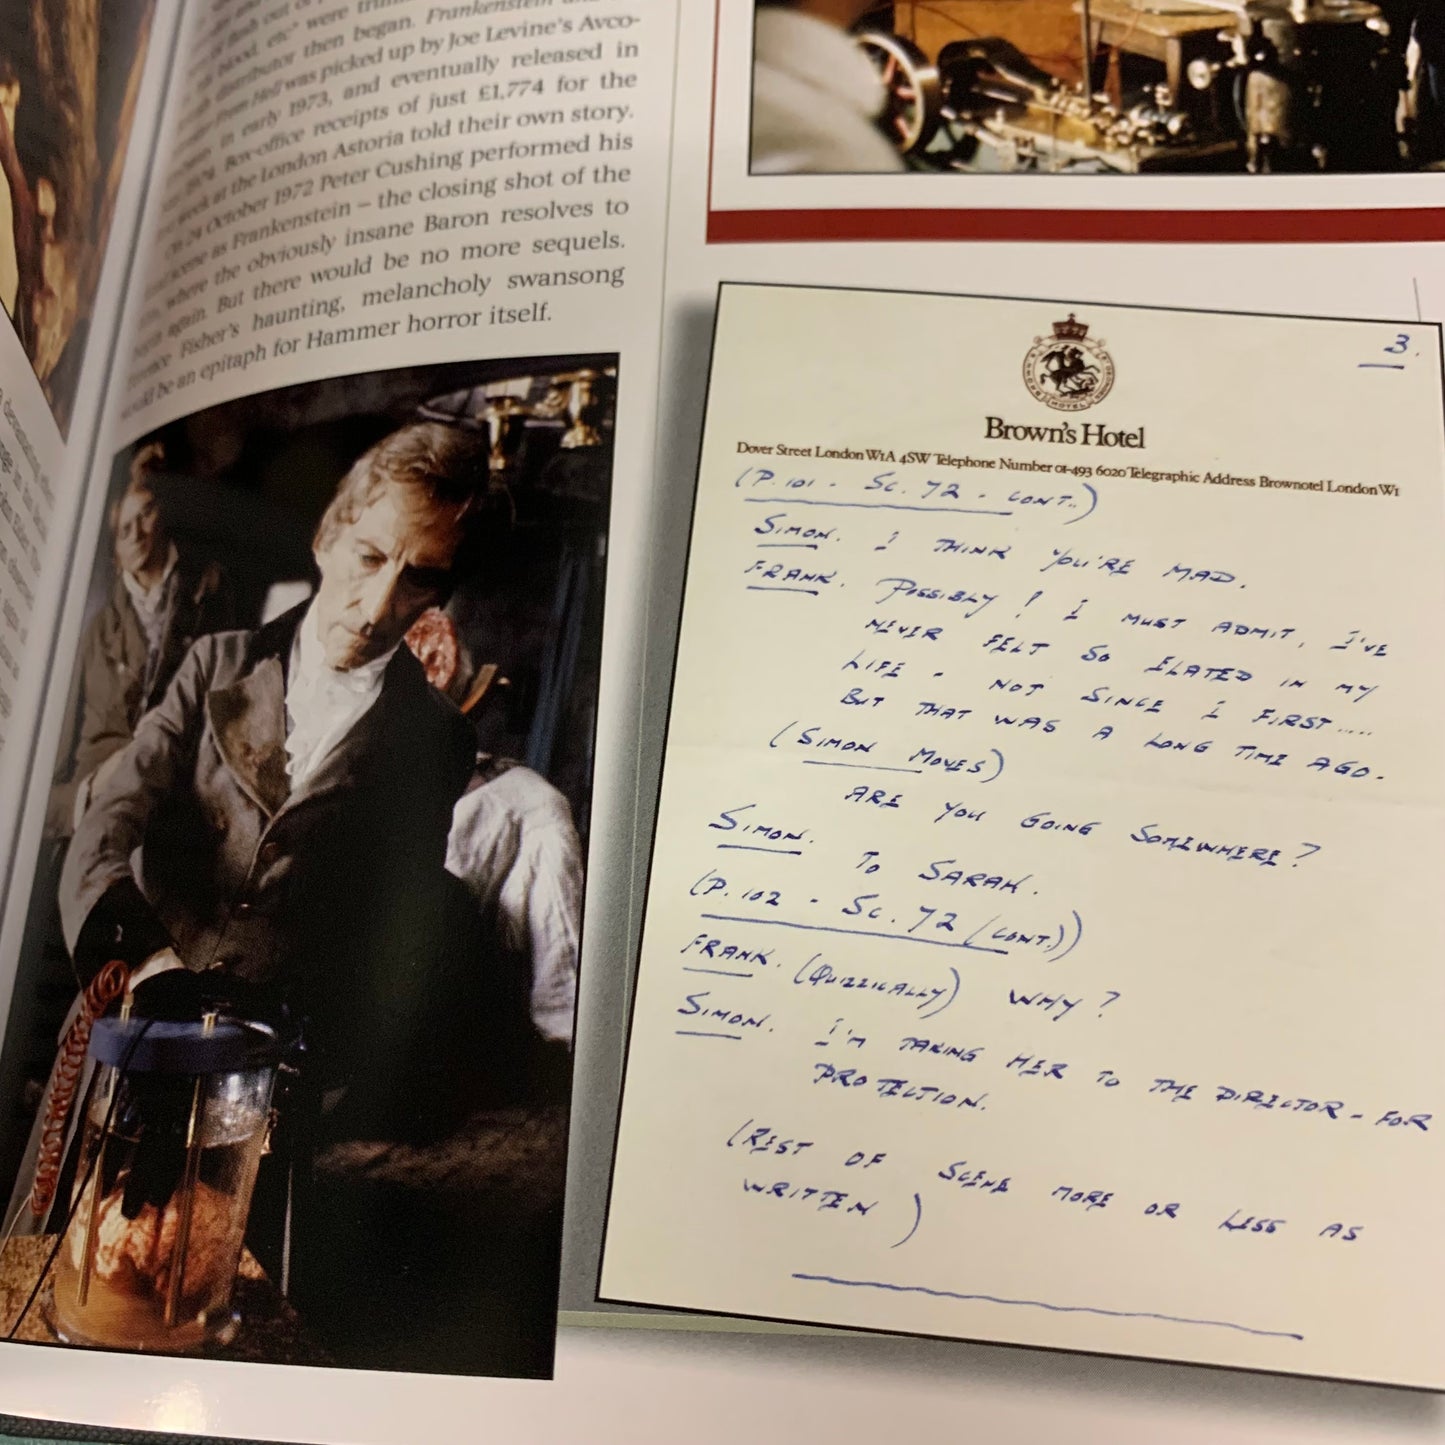 of flesh out of
blood, etc" were
distributor then began. Frankenstein
From Hell was picked up by Joe Levine's Avco-
in early 1973, and eventually released in
1974. Box-office receipts of just £1,774 for the
week at the London Astoria told their own story.
On 24 October 1972 Peter Cushing performed his
scene as Frankenstein – the closing shot of the
where the obviously insane Baron resolves to
begin again. But there would be no more sequels.
Terence Fisher's haunting, melancholy swansong
would be an epitaph for Hammer horror itself.
3.
Brown's Hotel
Dover Street London W1A 4SW Telephone Number 01-493 6020 Telegraphic Address Brownotel London W1
(P. 101 - Sc. 72 - CONT..)
SIMON. I THINK YOU'RE MAD.
FRANK. POSSIBLY! I MUST ADMIT, I'VE
NEVER FELT SO ELATED IN MY
LIFE - NOT SINCE I FIRST.....
BUT THAT WAS A LONG TIME AGO.
(SIMON MOVES)
ARE YOU GOING SOMEWHERE?
SIMON. TO SARAH.
(P. 102 - Sc. 72 (CONT.))
FRANK. (QUIZZICALLY) WHY?
SIMON. I'M TAKING HER TO THE DIRECTOR - FOR
PROTECTION.
(REST OF SCENE MORE OR LESS AS
WRITTEN)